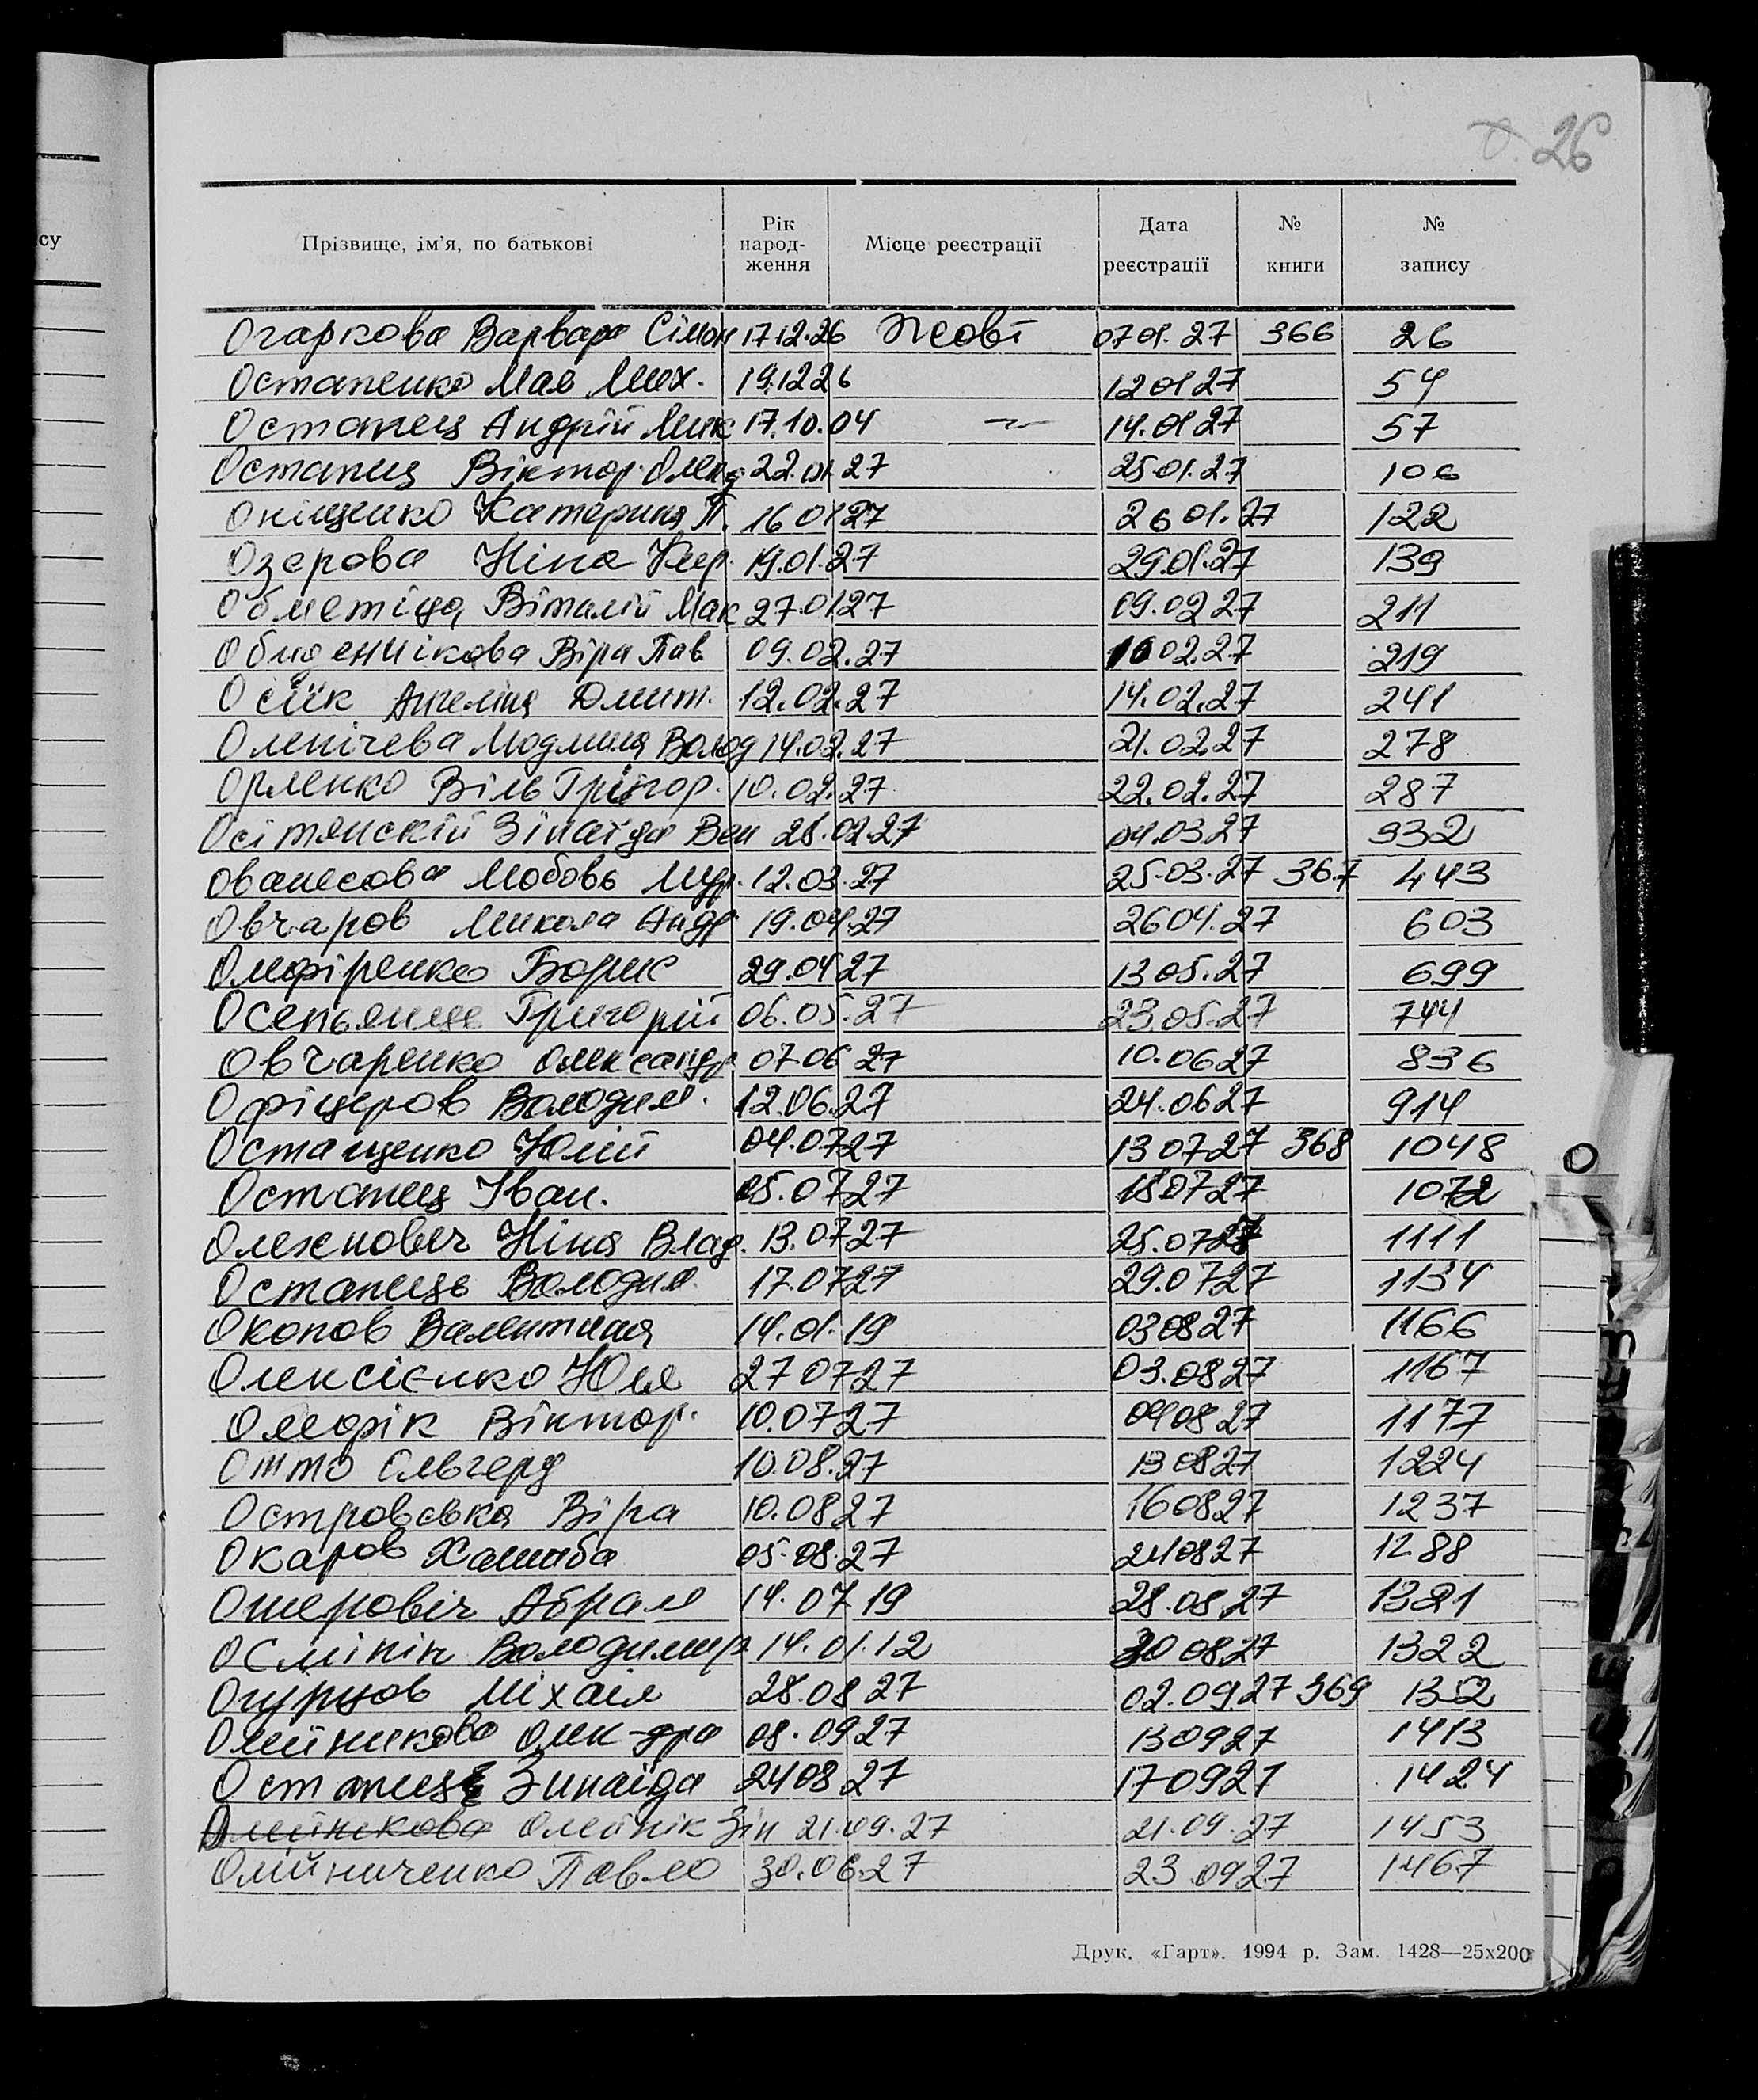 26
су
Прізвище, ім'я, по батькові Рік народ-ження Місце реєстрації Дата реєстрації № книги № запису
Огаркова Варвара Сімон 17.12.26 Жовт 07.01.27 366 26
Остапенко Мая Мих. 19.12.26 12.01.27 54
Остапец Андрій Мик 17.10.04 14.01.27 57
Остапец Віктор Олекс 22.01.27 25.01.27 106
Оніщенко Катерина П. 16.01.27 26.01.27 122
Озерова Ніна 19.01.27 29.01.27 139
Віталій Мак 27.01.27 09.02.27 211
Обиденнікова Віра Пав 09.02.27 16.02.27 219
Осіїк Ангеліна Дмит. 12.02.27 14.02.27 241
Оленічева Людмила Волод 14.02.27 21.02.27 278
Орленко Віль Грігор. 10.02.27 22.02.27 287
Осітянскій Зінаїда Вен 28.02.27 04.03.27 332
Ованесова Любовь 12.03.27 25.03.27 367 443
Овчаров Микола Андр 19.04.27 26.04.27 603
Олефіренко Борис 29.04.27 13.05.27 699
Григорій 06.05.27 23.05.27 744
Овчаренко Олександр 07.06.27 10.06.27 836
Офіцеров Володим. 12.06.27 24.06.27 914
Остащенко Юлій 04.07.27 13.07.27 368 1048
Остапец Іван. 05.07.27 18.07.27 1072
Олехнович Ніна Влад. 13.07.27 25.07.27 1111
Остапець Володим. 17.07.27 29.07.27 1134
Окопов Валентина 14.01.19 03.08.27 1166
Олексієнко Юлія 27.07.27 03.08.27 1167
Олефік Віктор. 10.07.27 04.08.27 1177
Отто Ольгерд 10.08.27 13.08.27 1224
Островська Віра 10.08.27 16.08.27 1237
Окаров 05.08.27 24.08.27 1288
Ошеровіч Абрам 14.07.19 28.08.27 1321
Осмінін Володимир 14.01.12 30.08.27 1322
Огурцов Міхаіл 28.08.27 02.09.27 369 1352
Олійникова Олек-дра 08.09.27 13.09.27 1413
Остапець Зинаіда 24.08.27 17.09.27 1424
Олейнікова Олейнік Зін 21.09.27 21.09.27 1453
Олійниченко Павло 30.06.27 23.09.27 1467
Друк. «Гарт». 1994 р. Зам. 1428—25х200